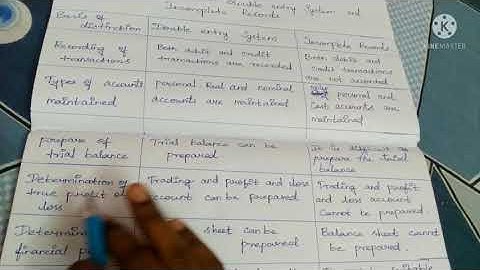 Double entry System and
Incomplete Records
Basis of
distinction
Double entry System
Incomplete Records
Recording of
transactions
Both debits and credit
transactions are recorded
Both debits and
credit transactions
are not recorded
Types of accounts
maintained
personal Real and nominal
accounts are maintained
only personal and
Cash accounts are
maintained
prepare of
trial balance
Trial balance can be
prepared
It is difficult to
prepare the trial
balance
Determination of
true profit or
loss
Trading and profit and loss
account can be prepared
Trading and profit
and loss account
Cannot be prepared.
Determin
financial p
sheet can be
prepared
Balance sheet cannot
be prepared.
KINEMASTER